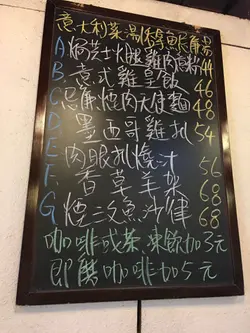 意大利菜湯
A 芝士火腿雞肉意粉 44
B. 意式雞皇飯 46
C. 忌廉焗肉大使麵 48
D. 墨西哥雞扒 54
E. 肉眼扒燒汁 56
F. 香草羊架 68
G 煙三文魚沙律 68
咖啡或茶凍飲加3元
即磨咖啡加5元